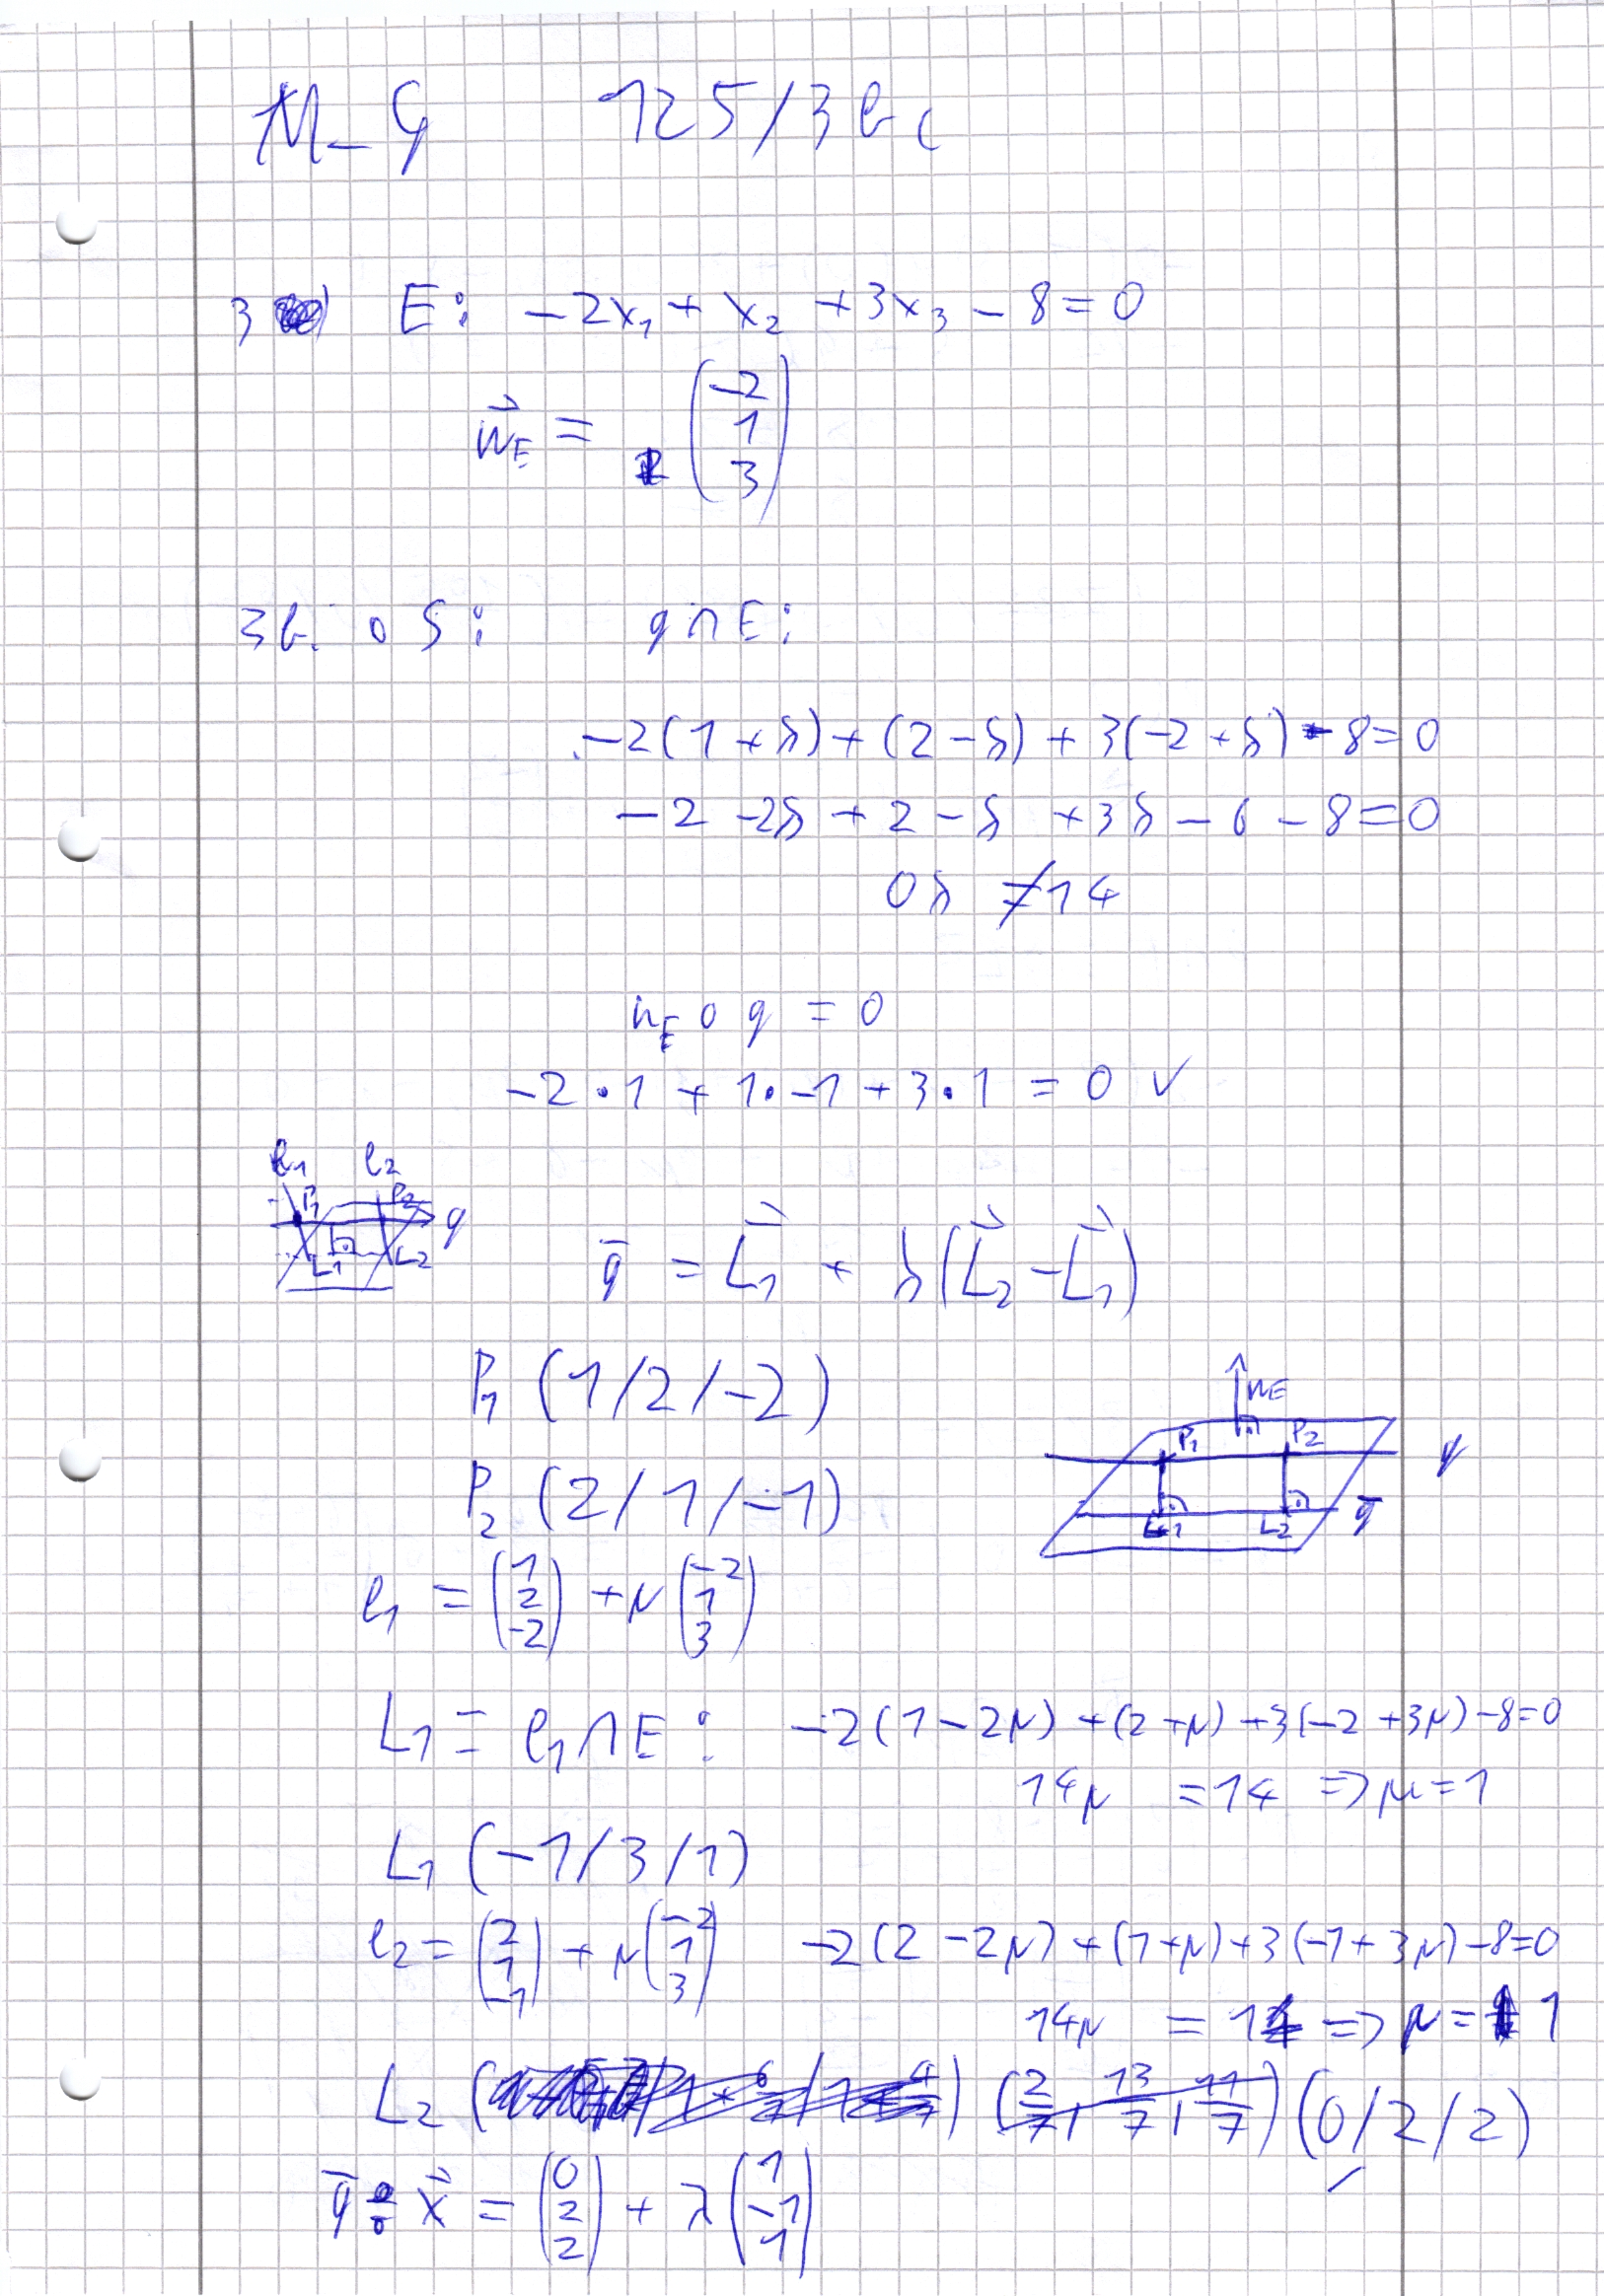 M_G 125/3bc
3 E: -2x₁ + x₂ + 3x₃ - 8 = 0
n⃗_E = (-2 1 3)
3b. o S: g∩E:
-2(1+s) + (2-s) + 3(-2+s) - 8 = 0
-2 -2s + 2 - s + 3s - 6 - 8 = 0
0s ≠ 14
n_E o g = 0
-2·1 + 1·-1 + 3·1 = 0 ✓
l₁ l₂
P₁ P₂ g
L₁ L₂
g̅ = L⃗₁ + s(L⃗₂ - L⃗₁)
P₁ (1/2/-2)
n_E
P₁ P₂ g
L₁ L₂ g̅
P₂ (2/1/-1)
l₁ = (1 2 -2) + μ(-2 1 3)
L₁ = l₁∩E: -2(1-2μ) + (2+μ) + 3(-2+3μ) - 8 = 0
14μ = 14 => μ = 1
L₁ (-1/3/1)
l₂ = (2 1 -1) + μ(-2 1 3) -2(2-2μ) + (1+μ) + 3(-1+3μ) - 8 = 0
14μ = 14 => μ = 1
L₂ (2/7, 13/7, 11/7) (0/2/2)
g̅: x⃗ = (0 2 2) + λ(1 -1 1)